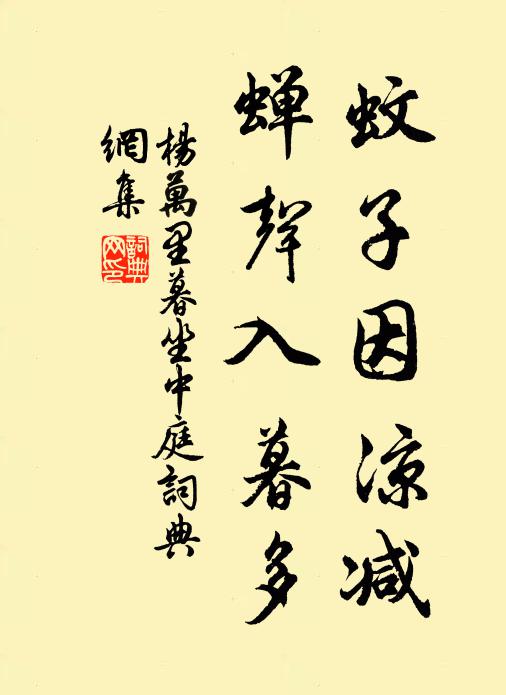 蚊子因涼減
蝉聲入暮多
楊萬里暮坐中庭詞典
網集
詞典网印